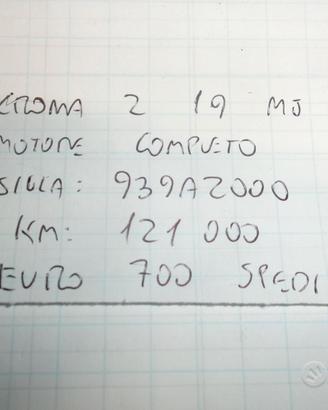 CROMA 2 19 MJ
MOTORE COMPLETO
SIGLA: 939A2000
KM: 121 000
EURO 700 SPEDI